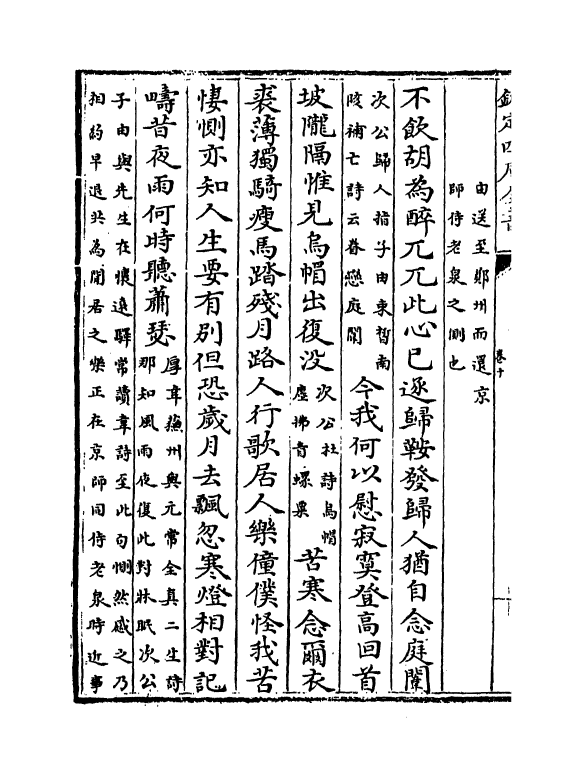 欽定四庫全書
卷十
由送至鄭州而還京
師侍老泉之側也
不飲胡為醉兀兀此心已逐歸鞍發歸人猶自念庭闈
次公歸人指子由束晳南
陔補亡詩云眷戀庭闈
今我何以慰寂寞登高回首
坡隴隔惟見烏帽出復没
次公杜詩烏帽
塵拂青螺粟
苦寒念爾衣
裘薄獨騎瘦馬踏殘月路人行歌居人樂僮僕怪我苦
悽惻亦知人生要有别但恐歲月去飄忽寒燈相對記
疇昔夜雨何時聽蕭瑟
厚韋蘇州與元常全真二生詩
那知風雨夜復此對牀眠次公
子由與先生在懷遠驛常讀韋詩至此句惻然感之乃
相約早退共為閒居之樂正在京師同侍老泉時近事